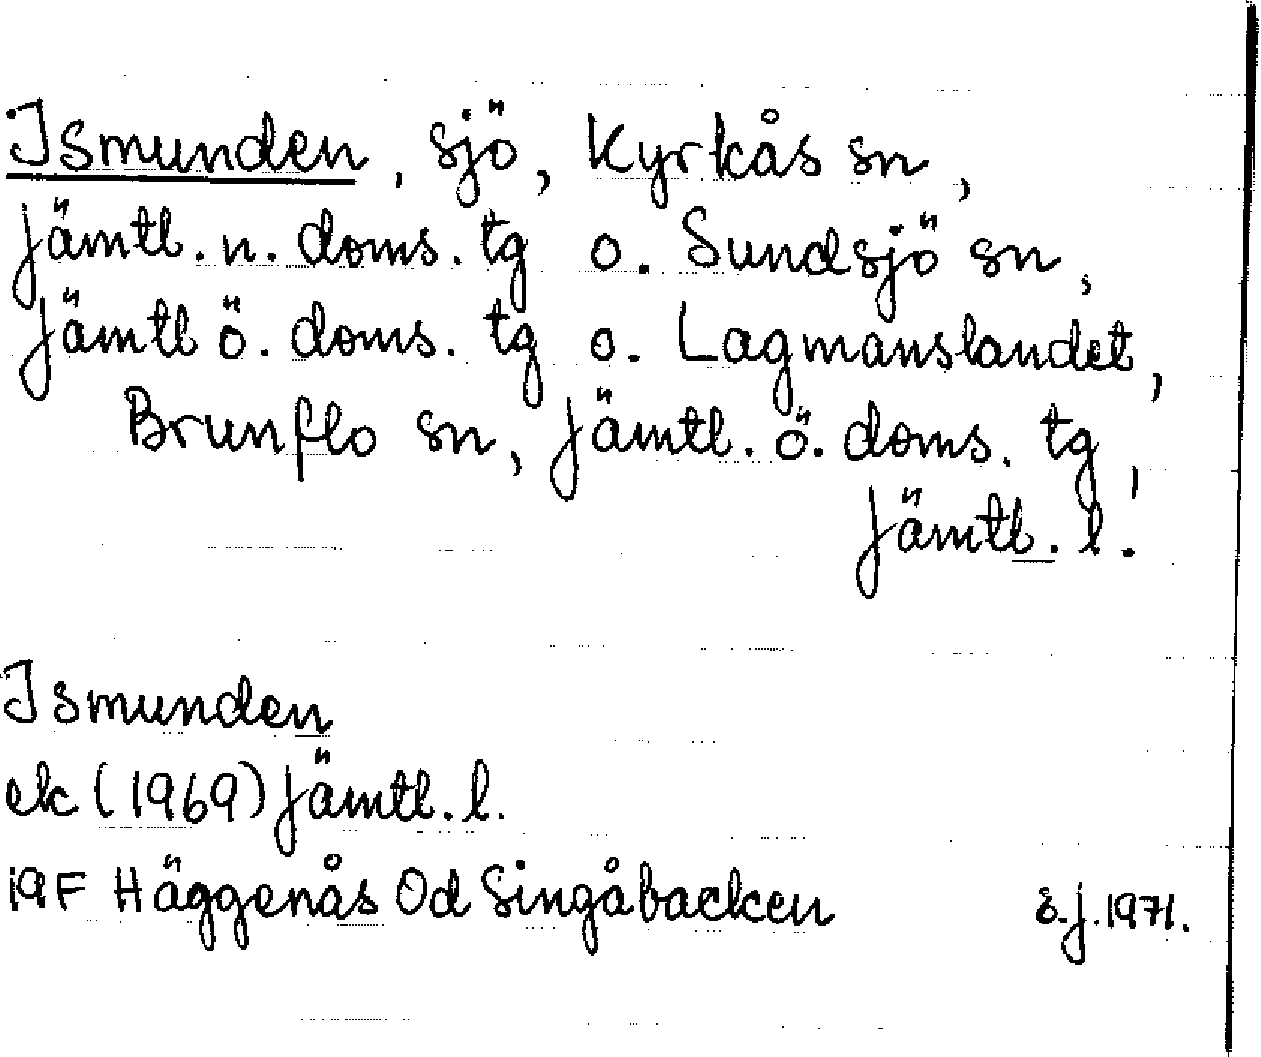 Ismunden, sjö, Kyrkås sn,
Jämtl. n. doms. tg o. Sundsjö sn,
Jämtl ö. doms. tg o. Lagmanslandet,
Brunflo sn, Jämtl. ö. doms. tg,
Jämtl. l.
Ismunden
ek (1969) Jämtl. l.
19F Häggenås 0d Singåbacken S.J. 1971.